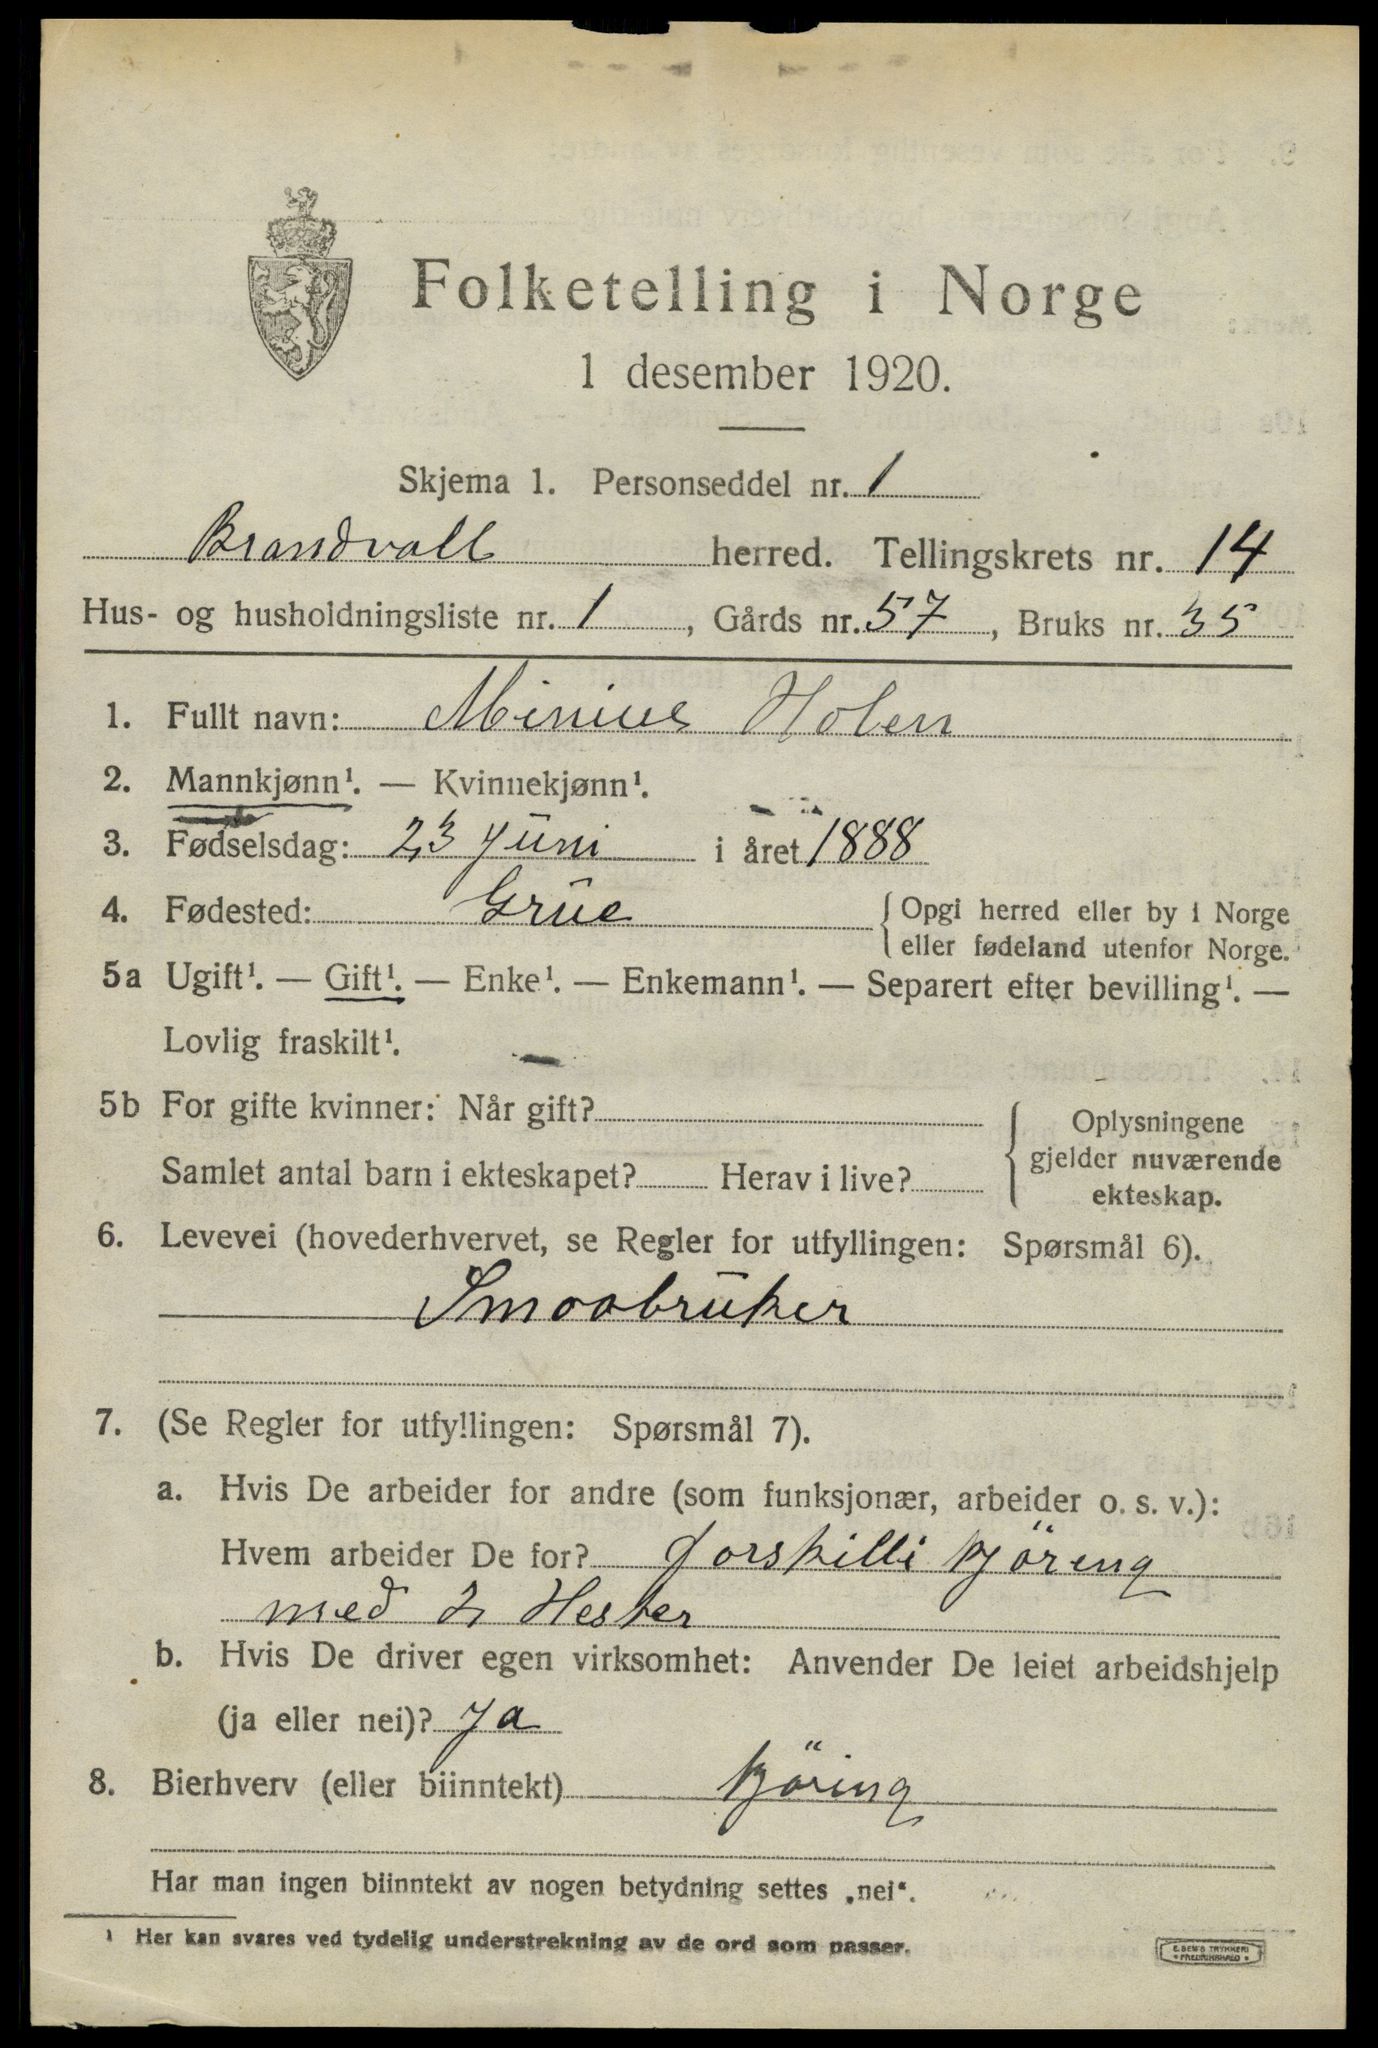 Folketelling i Norge
1 desember 1920.
Skjema 1. Personseddel nr. 1
Brandvall herred. Tellingskrets nr. 14
Hus- og husholdningsliste nr. 1, Gårds nr. 57, Bruks nr. 35
1. Fullt navn: Minius Holen
2. Mannkjønn¹. — Kvinnekjønn¹.
3. Fødselsdag: 23 juni i året 1888
4. Fødested: Grue { Opgi herred eller by i Norge
eller fødeland utenfor Norge.
5a Ugift¹. — Gift¹. — Enke¹. — Enkemann¹. — Separert efter bevilling¹. —
Lovlig fraskilt¹.
5b For gifte kvinner: Når gift? { Oplysningene
gjelder nuværende
Samlet antal barn i ekteskapet? Herav i live?
ekteskap.
6. Levevei (hovederhvervet, se Regler for utfyllingen: Spørsmål 6).
Smaabruker
7. (Se Regler for utfyllingen: Spørsmål 7).
a. Hvis De arbeider for andre (som funksjonær, arbeider o. s. v.):
Hvem arbeider De for? forskilli kjöreng
med 2 Hester
b. Hvis De driver egen virksomhet: Anvender De leiet arbeidshjelp
(ja eller nei)? Ja
8. Bierhverv (eller biinntekt) kjöring
Har man ingen biinntekt av nogen betydning settes „nei“.
¹ Her kan svares ved tydelig understrekning av de ord som passer.
E. SEM'S TRYKKERI
• FREDRIKSHALD •